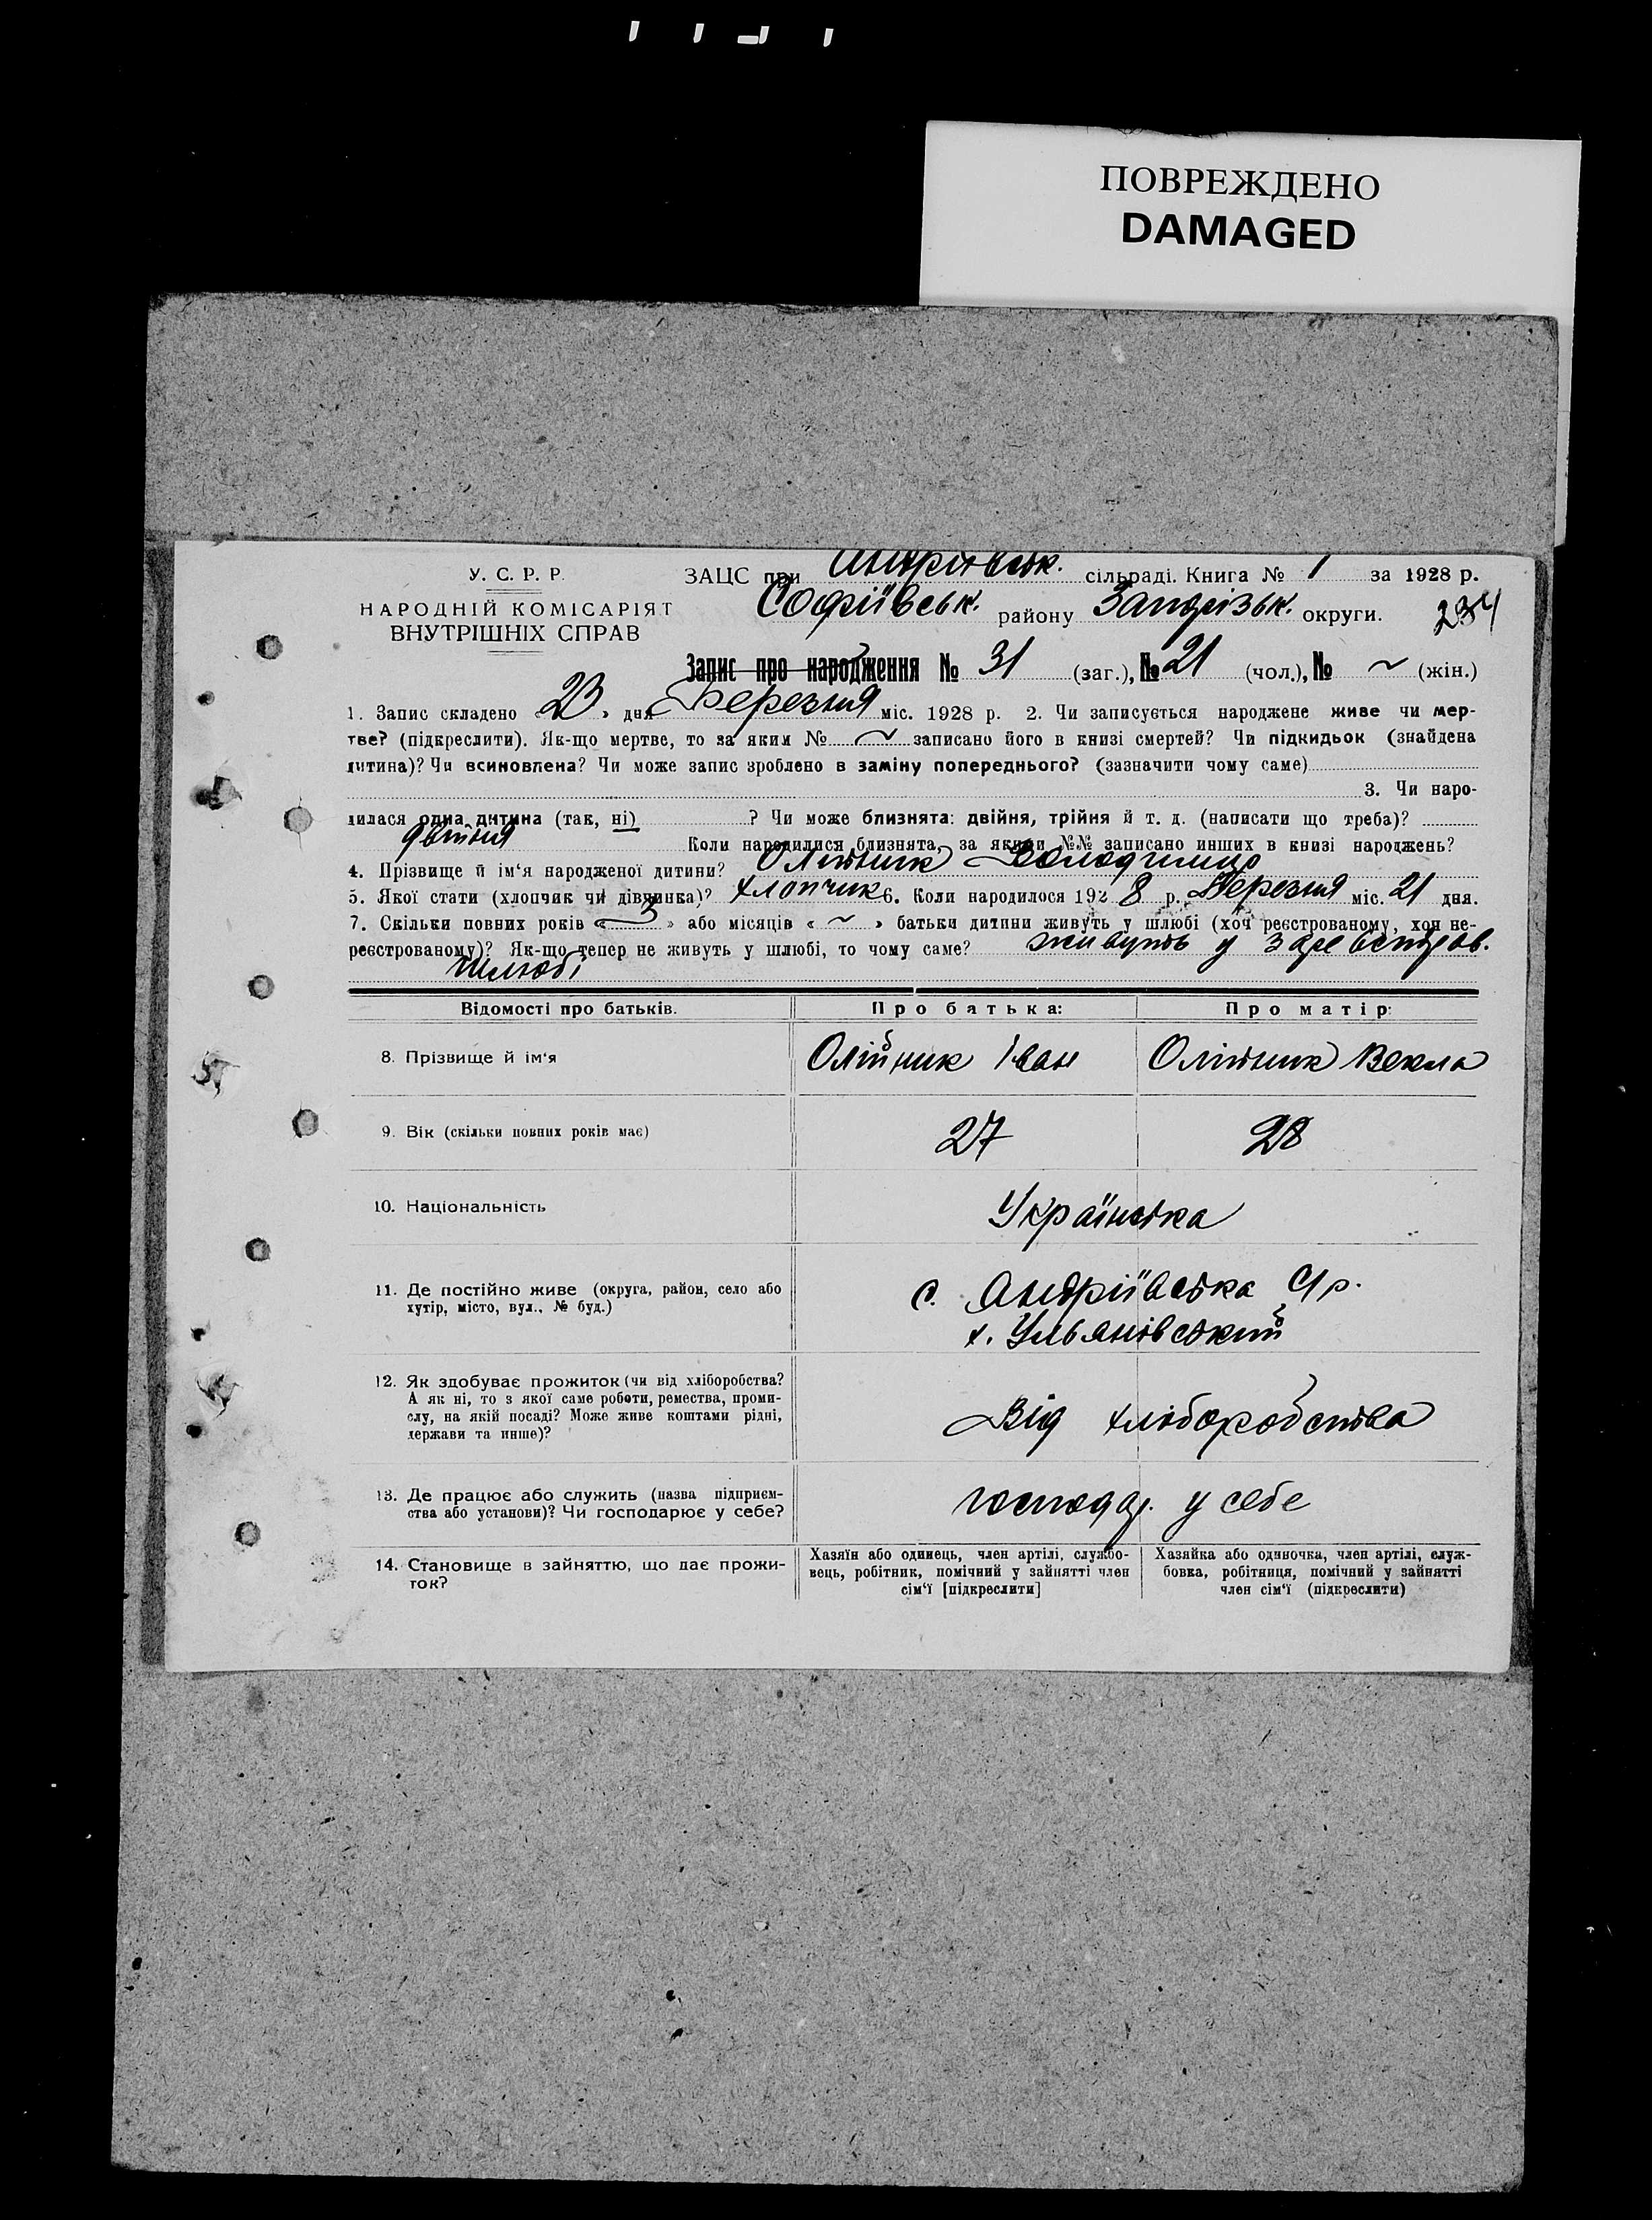 ПОВРЕЖДЕНО
DAMAGED
У. С. Р. Р.
НАРОДНІЙ КОМІСАРІЯТ
ВНУТРІШНІХ СПРАВ
ЗАЦС при Андріївськ. сільраді. Книга № 1 за 1928 р.
Софіївськ. району Запорізьк. округи.
234
Запис про народження № 31 (заг.), № 21 (чол.), № ~ (жін.)
1. Запис складено 23 » дня Березня міс. 1928 р. 2. Чи записується народжене живе чи мер-
тве? (підкреслити). Як-що мертве, то за яким № ~ записано його в книзі смертей? Чи підкидьок (знайдена
дитина)? Чи всиновлена? Чи може запис зроблено в заміну попереднього? (зазначити чому саме)
3. Чи наро-
дилася одна дитина (так, ні) ? Чи може близнята: двійня, трійня й т. д. (написати що треба)?
двійня Коли народилися близнята, за якими №№ записано инших в книзі народжень?
4. Прізвище й ім‘я народженої дитини? Олійник Володимир
5. Якої стати (хлопчик чи дівчинка)? хлопчик 6. Коли народилося 192 8 р. Березня міс. 21 дня.
7. Скільки повних років « 3 » або місяців « ~ » батьки дитини живуть у шлюбі (хоч реєстрованому, хоч не-
реєстрованому)? Як-що тепер не живуть у шлюбі, то чому саме? живуть у
шлюбі
Відомості про батьків.
Про батька:
Про матір:
8. Прізвище й ім‘я
Олійник Іван
Олійник Векла
9. Вік (скільки повних років має)
27
28
10. Національність
Українська
11. Де постійно живе (округа, район, село або
хутір, місто, вул., № буд.)
с. Андріївська С/р.
х. Ульянівський
12. Як здобуває прожиток (чи від хліборобства?
А як ні, то з якої саме роботи, ремества, проми-
слу, на якій посаді? Може живе коштами рідні,
держави та инше)?
Від хліборобства
13. Де працює або служить (назва підприєм-
ства або установи)? Чи господарює у себе?
господар. у себе
14. Становище в зайняттю, що дає прожи-
ток?
Хазяїн або одинець, член артілі, службо-
вець, робітник, помічний у зайнятті член
сім‘ї [підкреслити]
Хазяйка або одиночка, член артілі, служ-
бовка, робітниця, помічний у зайнятті
член сім‘ї (підкреслити)